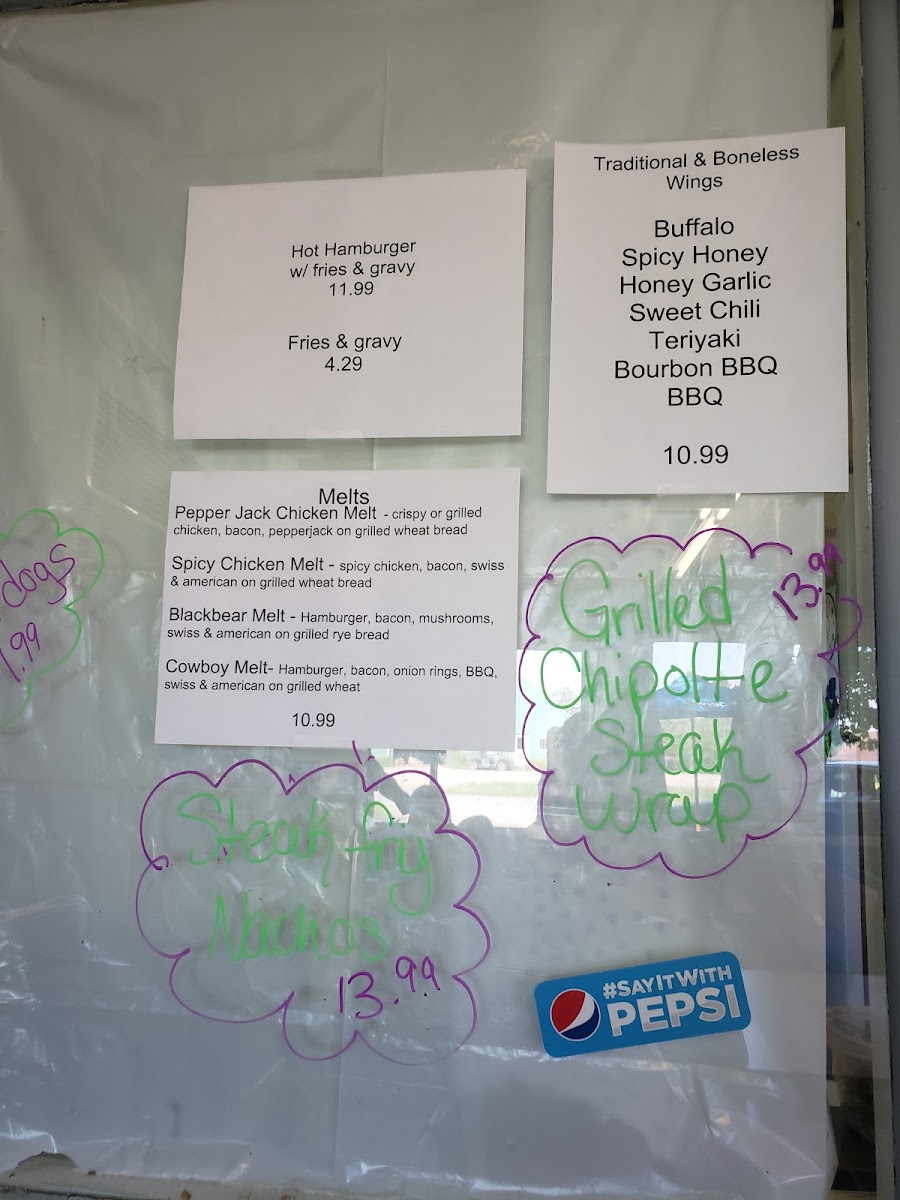 Hot Hamburger
w/ fries & gravy
11.99
Fries & gravy
4.29
Traditional & Boneless
Wings
Buffalo
Spicy Honey
Honey Garlic
Sweet Chili
Teriyaki
Bourbon BBQ
BBQ
10.99
Melts
Pepper Jack Chicken Melt - crispy or grilled
chicken, bacon, pepperjack on grilled wheat bread
Spicy Chicken Melt - spicy chicken, bacon, swiss
& american on grilled wheat bread
Blackbear Melt - Hamburger, bacon, mushrooms,
swiss & american on grilled rye bread
Cowboy Melt- Hamburger, bacon, onion rings, BBQ,
swiss & american on grilled wheat
10.99
dogs
.99
Grilled
Chipolte
Steak
Wrap
13.99
Steak fry
Nachos
13.99
#SAYITWITH
PEPSI